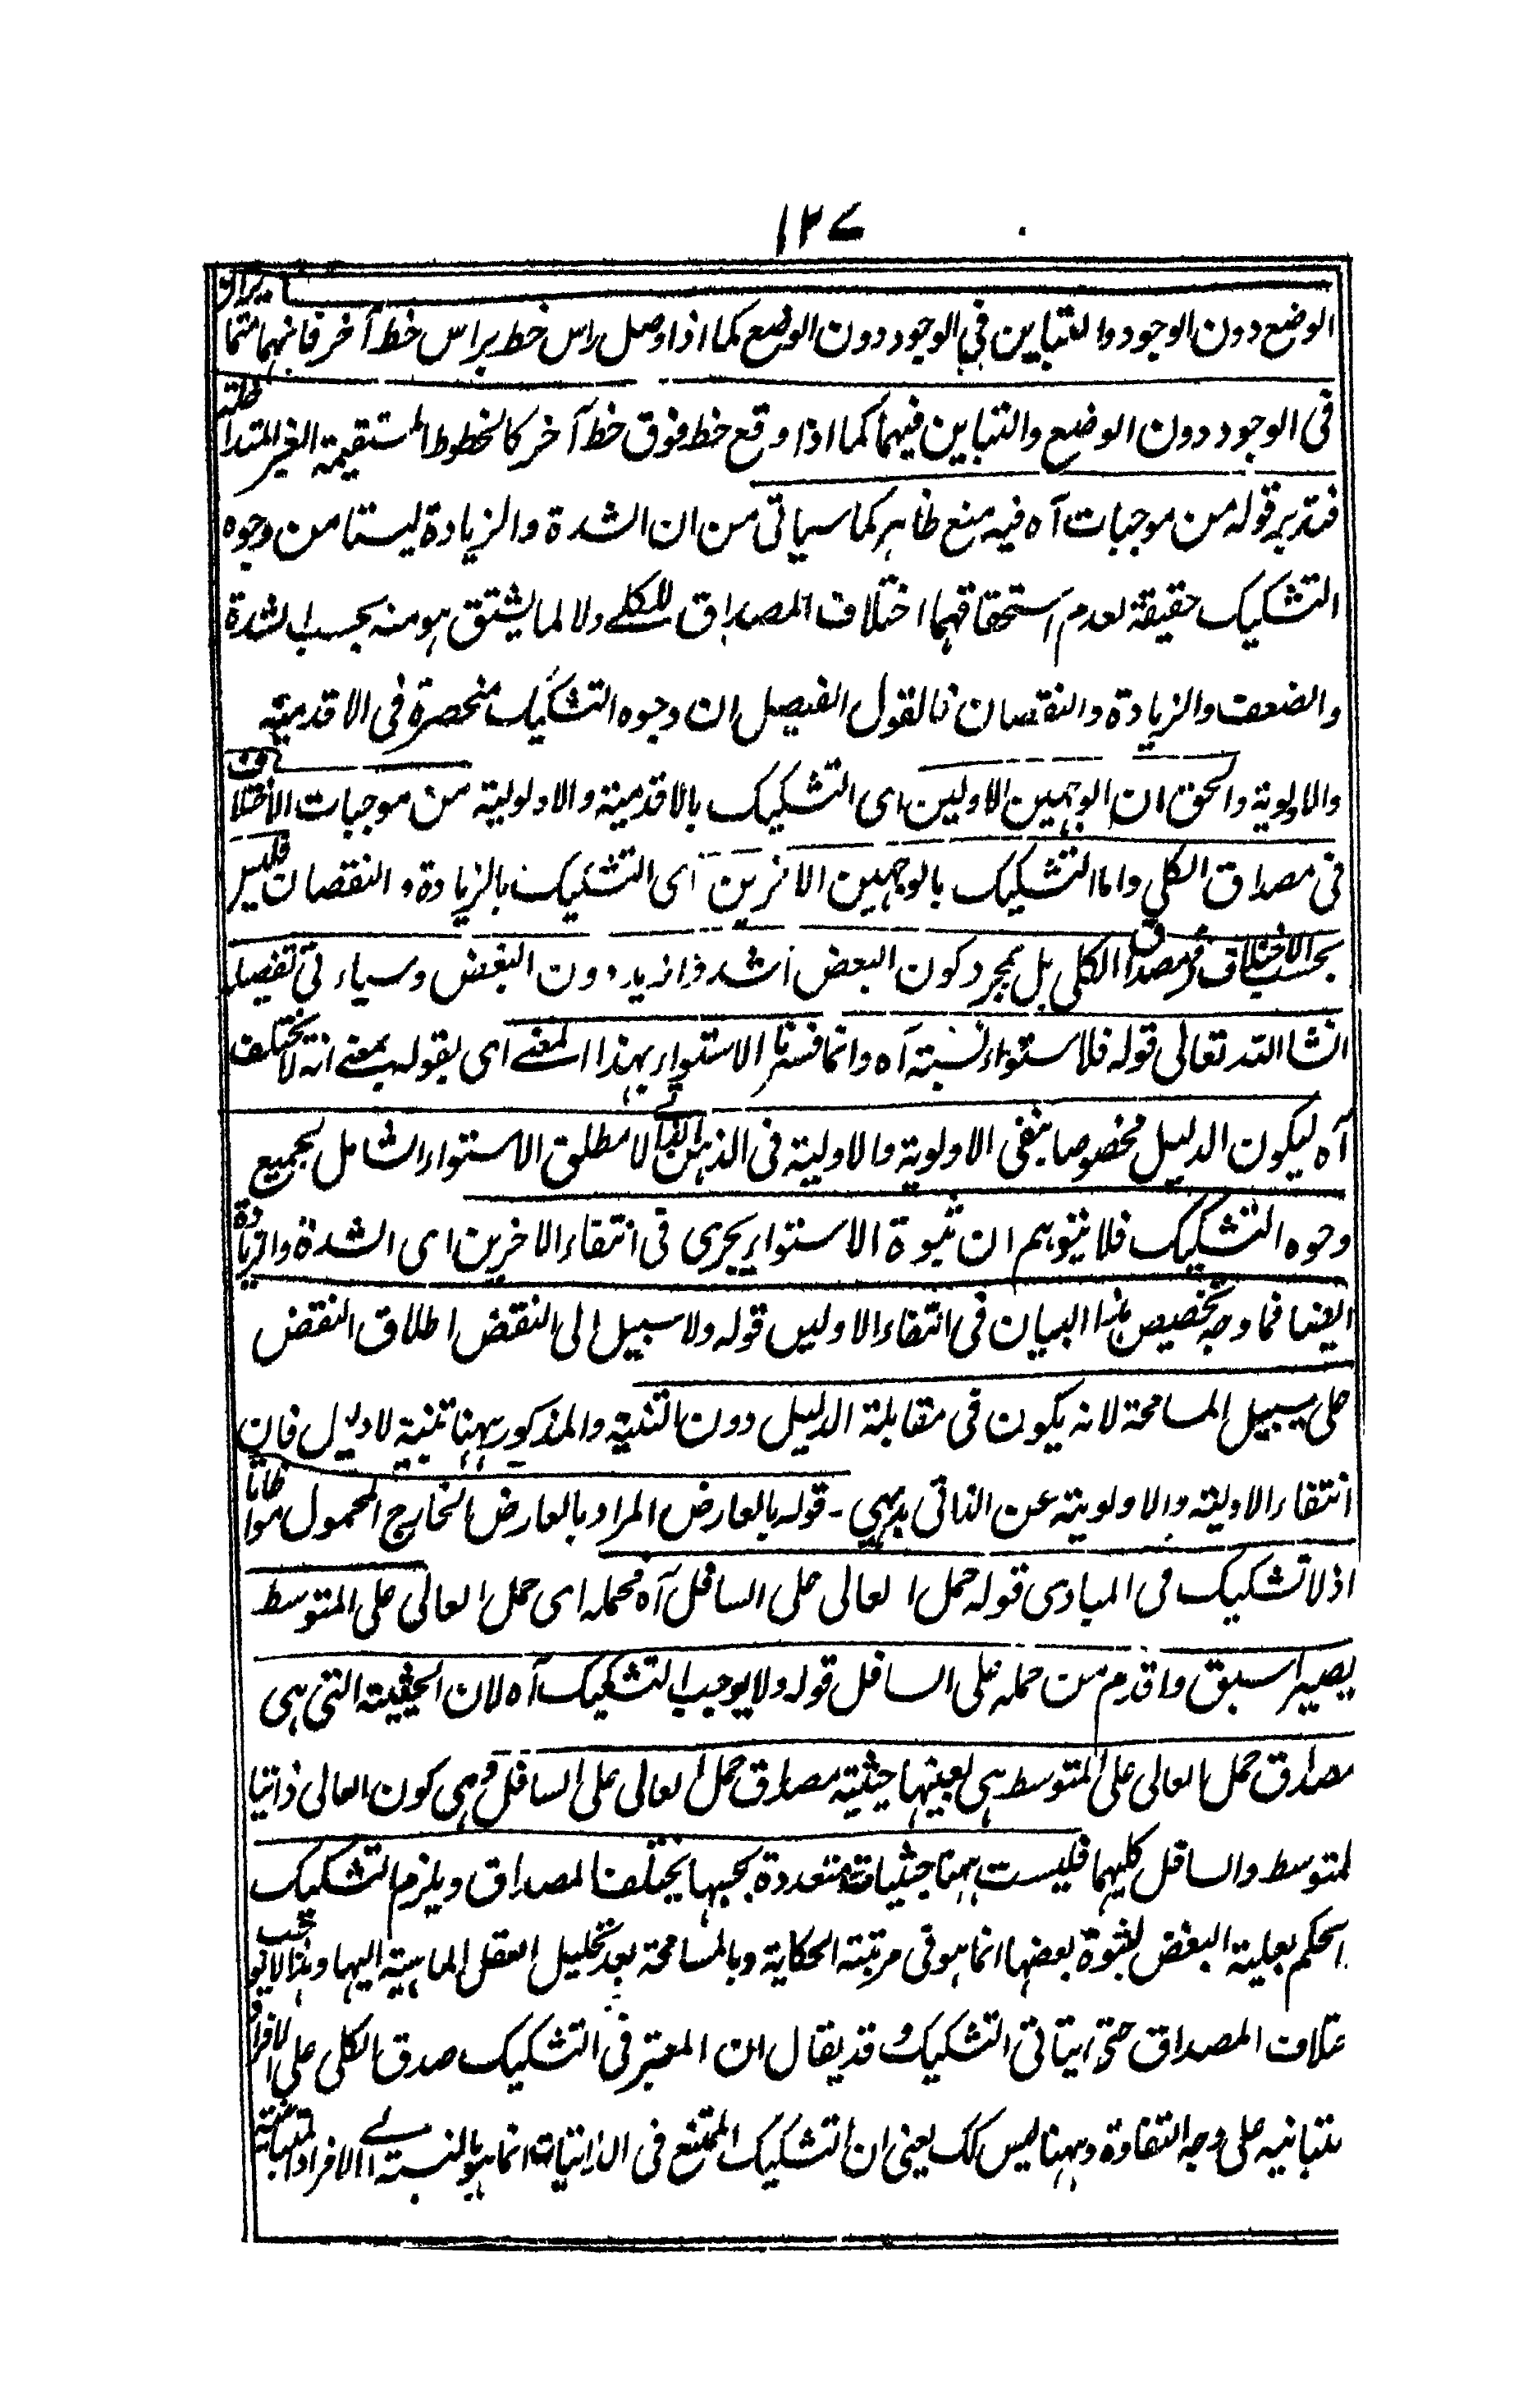 ١٢٧
الوضع دون الوجود والمتباين في الوجود دون الوضع كما اذا وصل راس خط براس خط آخر فانهما متمايزان
في الوجود دون الوضع والتباين فيهما كما اذا وقع خط فوق خط آخر كالخطوط المستقيمة الغير المتداخلة
فتدبر قوله من موجبات آه فيه منع ظاهر كما سياتي من ان الشدة والزيادة ليستا من وجوه
التشكيك حقيقة لعدم استحقاقهما اختلاف المصداق للكلے ولا لما يشتق هو منه بحسب الشدة
والضعف والزيادة والنقصان فالقول الفيصل ان وجوه التشكيك منحصرة في الاقدمية
والاولوية والحق ان الوجهين الاولين اى التشكيك بالاقدمية والاولوية من موجبات الاختلاف
في مصداق الكلي واما التشكيك بالوجهين الاخرين اى التشكيك بالزيادة والنقصان فليس
بحسب الاختلاف في مصداق الكلى بل بمجرد كون البعض اشد وازيد دون البعض وسياتى تفصيله
انشا الله تعالى قوله فلاستواء نسبته آه وانما فسرنا الاستواء بهذا المعنے اى بقوله بمعنے انه لا يختلف
آه ليكون الدليل مخصوصا بنفى الاولوية والاولية في الذاتے لا مطلق الاستواء الشامل لجميع
وجوه التشكيك فلا يتوهم ان ثبوة الاستواء يجرى في انتفاء الاخرين اى الشدة والزيادة
ايضا فما وجه تخصيص هذا البيان في انتفاء الاوليں قوله ولا سبيل الى النقض اطلاق النقض
على سبيل المسامحة لانه يكون في مقابلة الدليل دون التنبيه والمذكور ههنا تنبيه لا دليل فان
انتفاء الاولية والاولوية عن الذاتى بديهي - قوله بالعارض المراد بالعارض الخارج المحمول مواطاتا
اذ لا تشكيك فى المبادى قوله حمل العالى على السافل آه فحمله اى حمل العالى على المتوسط
يصير اسبق واقدم من حمله على السافل قوله ولا يوجب التشكيك آه لان الحيثية التى هى
مصداق حمل العالى على المتوسط هى بعينها حيثية مصداق حمل العالى على السافل وهى كون العالى ذاتيا
لمتوسط والسافل كليهما فليست ههنا حيثيات متعددة بحبها يختلف المصداق ويلزم التشكيك
الحكم بعلية البعض لثبوة بعضها انما هو فى مرتبة الحكاية وبالمسامحة بعد تحليل العقل الماهية اليها وهذا لا يوجب
ختلاف المصداق حتى يتاتى التشكيك وقد يقال ان المعتبر فى التشكيك صدق الكلى على الافراد
متباينه على وجه التفاوة وههنا ليس كك يعنى ان التشكيك الممتنع فى الذاتيات انما هو بالنسبة الے الافراد المتباينة